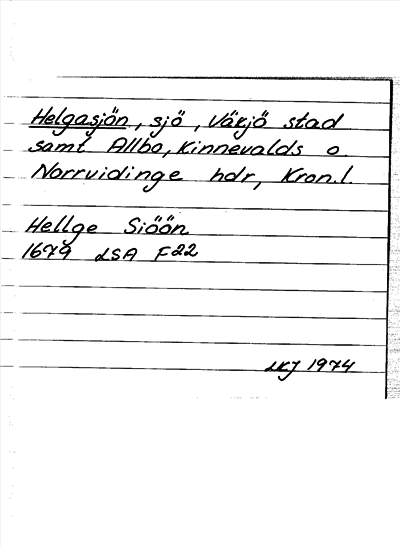 Helgasjön, sjö, Växjö stad
samt Allbo, Kinnevalds o.
Norrvidinge hdr, Kron.l.
Hellge Siöön
1679 LSA F22
LKJ 1974